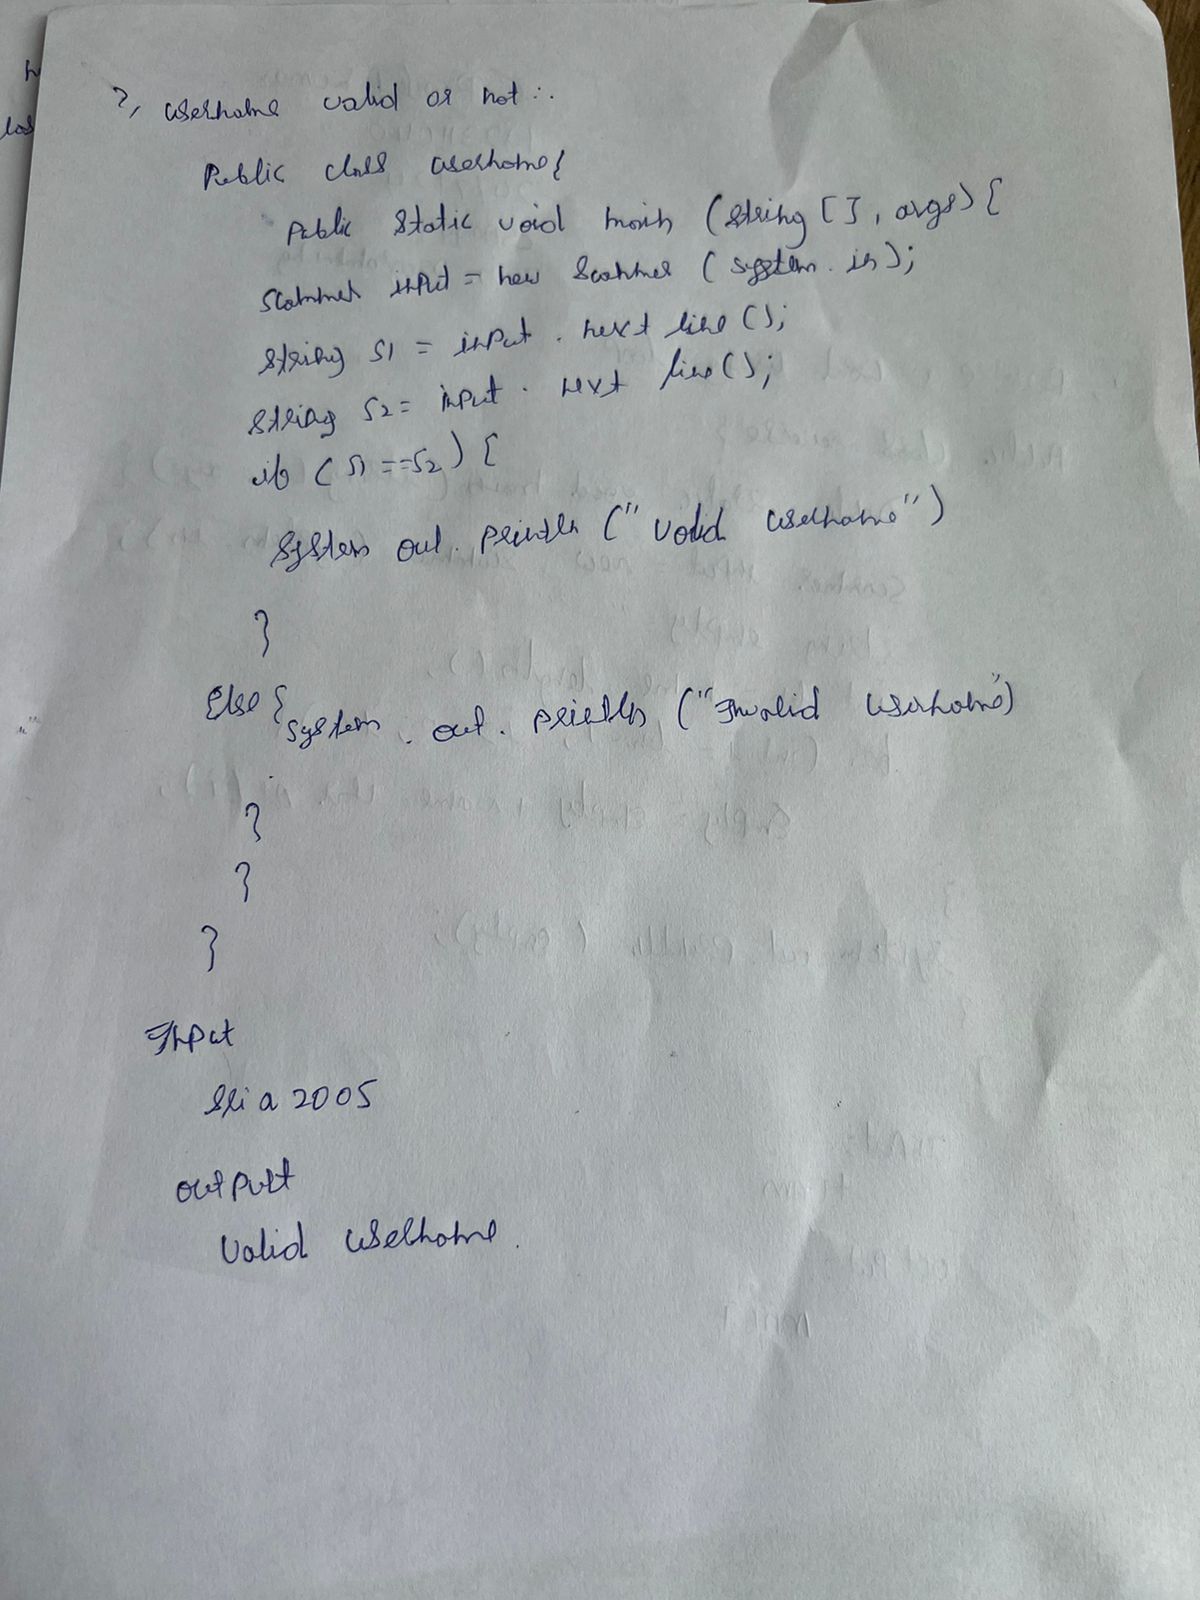 7, username valid or not :.
Public class username{
Public static void main (string [], args) {
Scanner input = new Scanner (system . in);
string s1 = input . next line ();
string s2 = input . next line();
if (s1 == s2) {
system out . println (" valid username")
}
Else {system . out . println ("Invalid username")
}
}
}
Input
sria2005
output
Valid username.